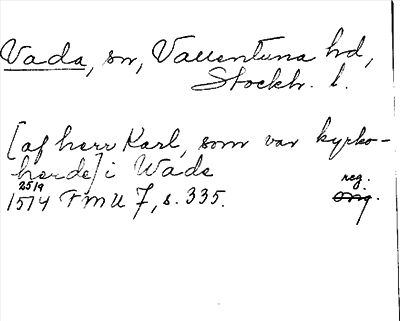 Vada, sn, Vallentuna hd,
Stockh. l.
[af herr Karl, som var kyrko-
herde] i Wada
25/9 reg.
1514 FMU 7, s. 335. orig.